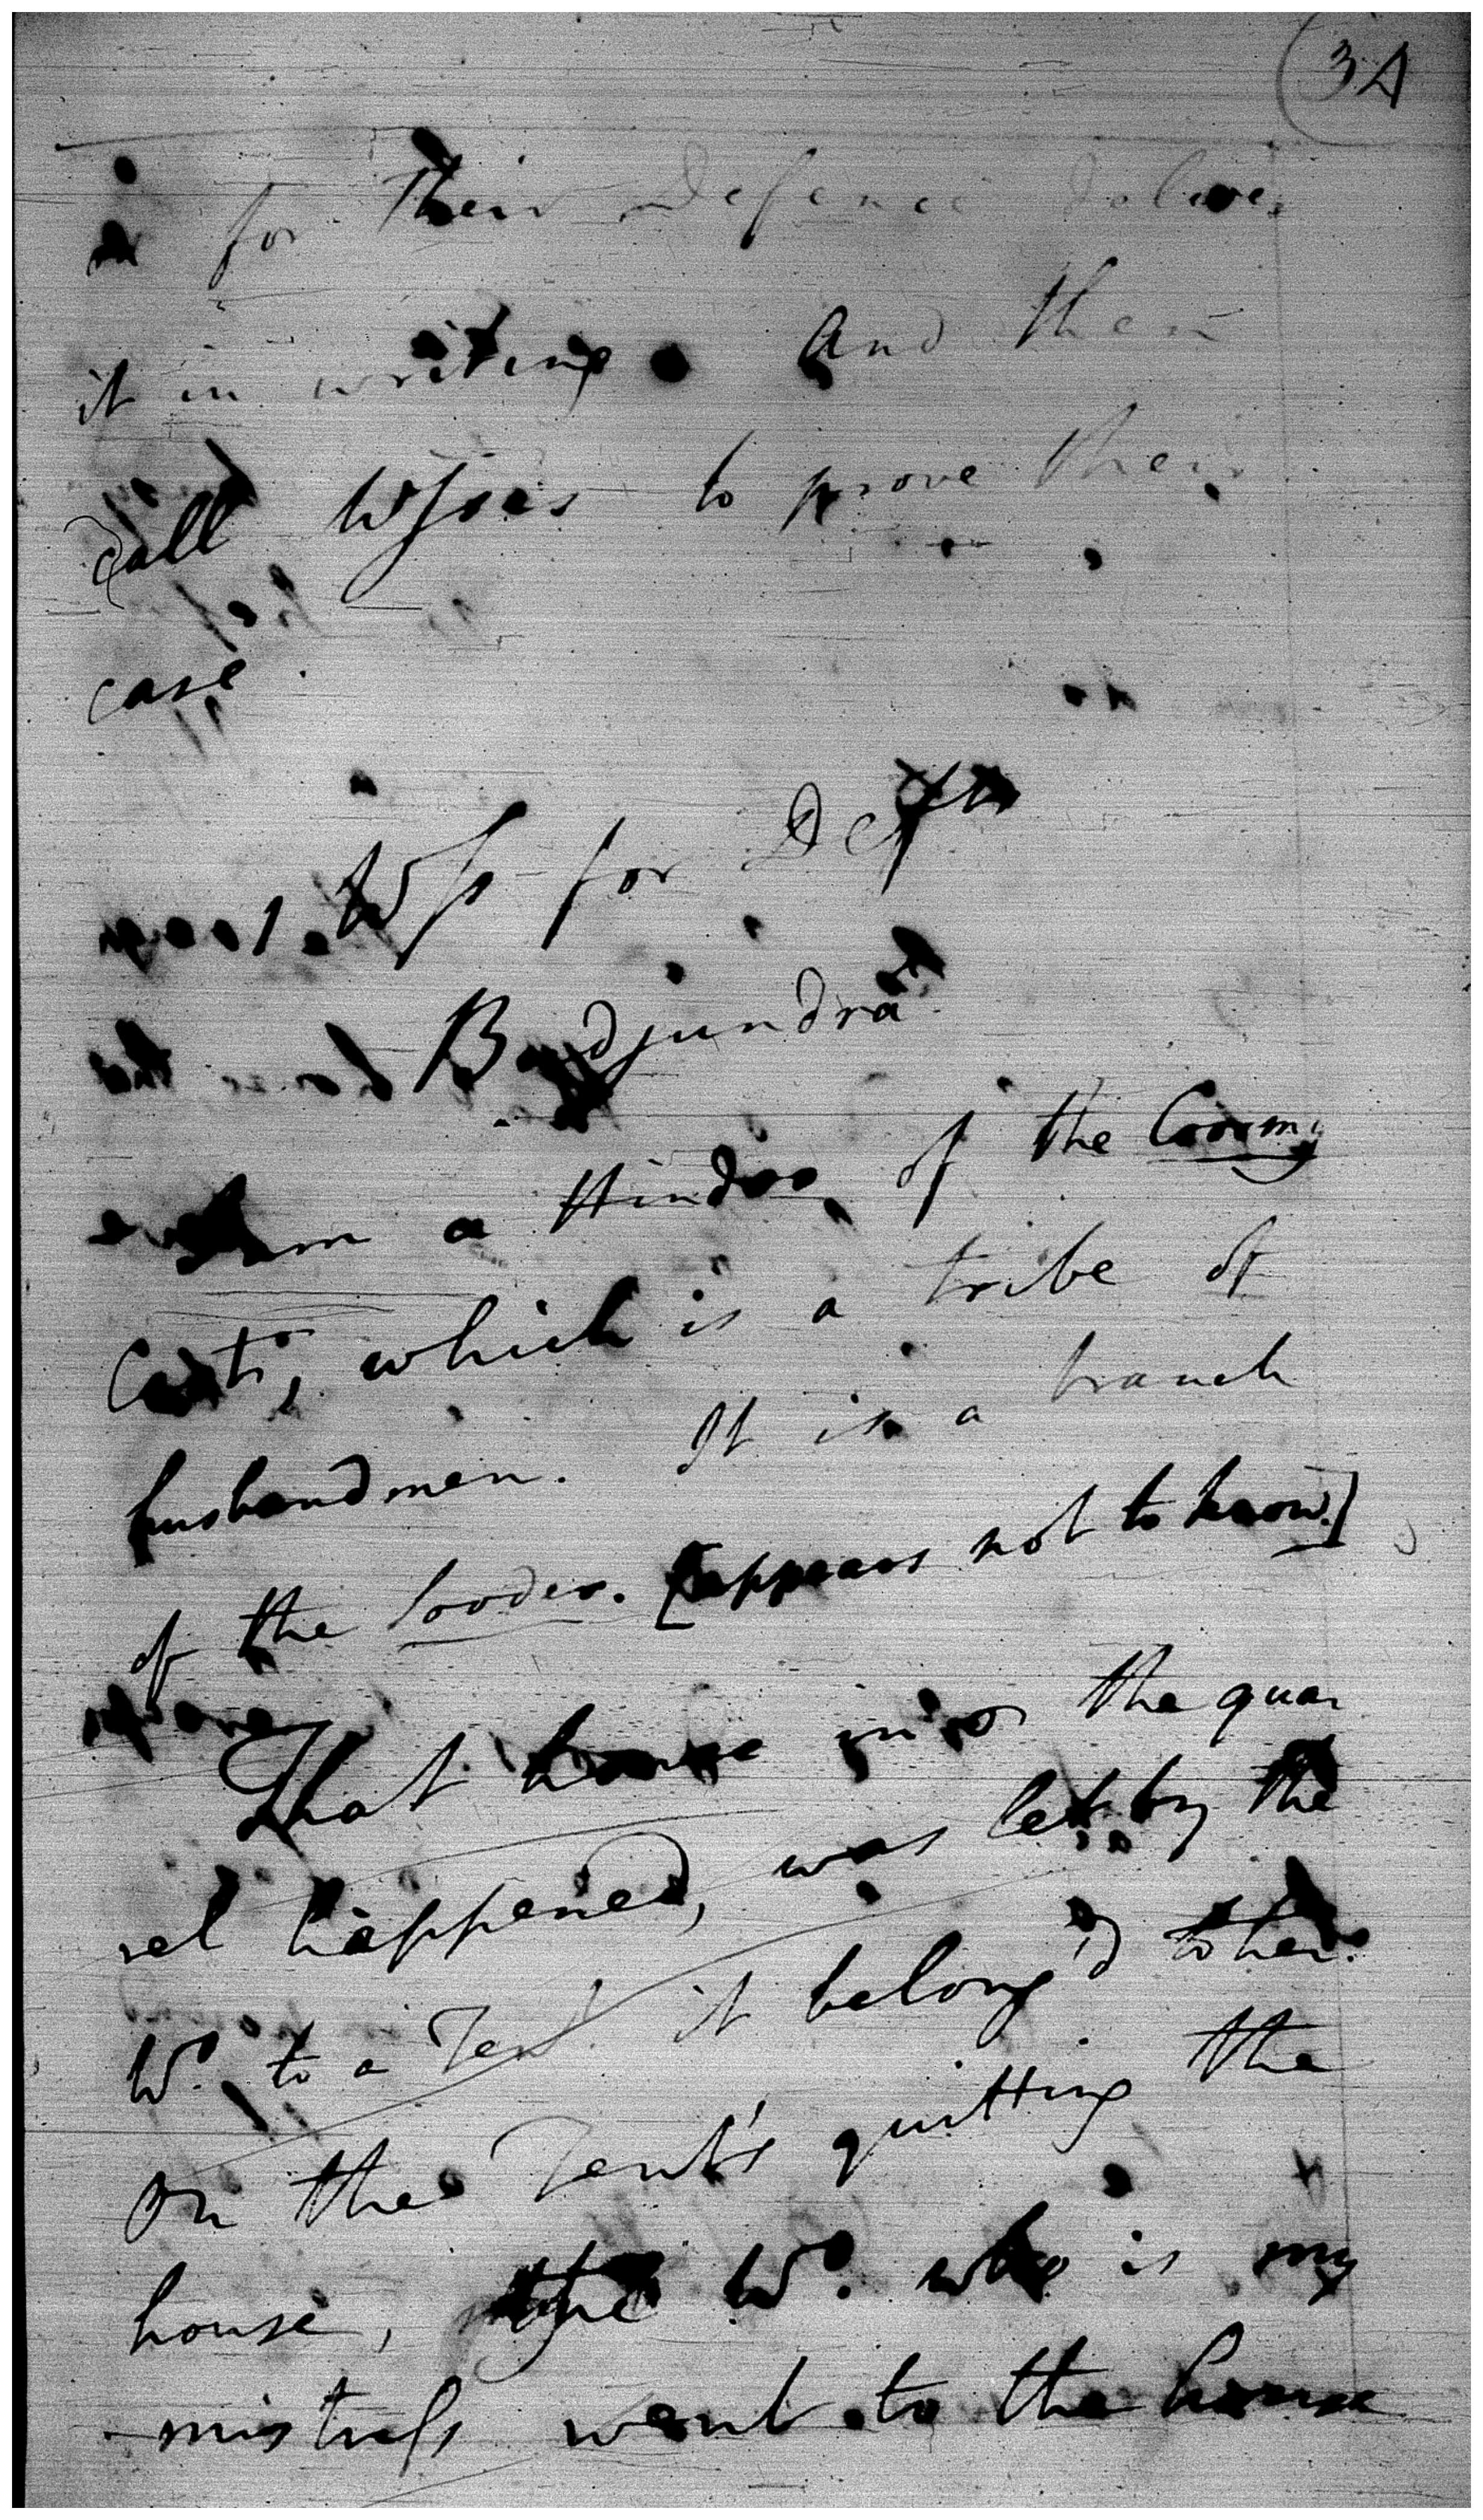 34
for their Defence deliver
it in writing. And then
call Wsses to prove their
case.
1. Wss for Defts
Budjundra
am a Hindoo, of the Coormy
Cast, which is a tribe of
husbandmen. It is a branch
of the Sooder. [appears not to know.]
That house in wn the quar
rel happened, was let by the
Wo. to a Tent. it belong'd to her.
On the Tent's quitting the
house, the Wo. who is my
mistress went to the house